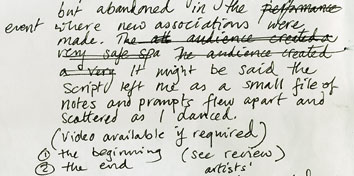 but abandoned in the performance
event where new associations were
made. The audience created a
very safe spa The audience created
a very It might be said the
script left me as a small file of
notes and prompts flew apart and
scattered as I danced.
(Video available if required)
① the beginning (see review)
② the end artists'